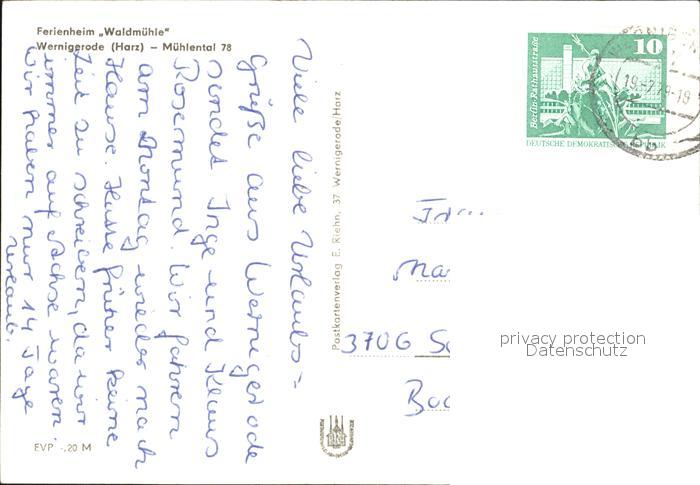 Ferienheim „Waldmühle"
Wernigerode (Harz) – Mühlental 78
Viele liebe Urlaubs =
Grüße aus Wernigerode
sendet Inge und Klaus
Rosemund. Wir fahren
am Montag wieder nach
Hause. Hatte früher keine
Zeit zu schreiben, da wir
immer auf Achse waren.
Wir haben nur 14 Tage
Urlaub.
EVP -,20 M
Postkartenverlag E. Riehn, 37 Wernigerode/Harz
Berlin-Rathausstraße
10
DEUTSCHE DEMOKRATISCHE REPUBLIK
3706
privacy protection
Datenschutz